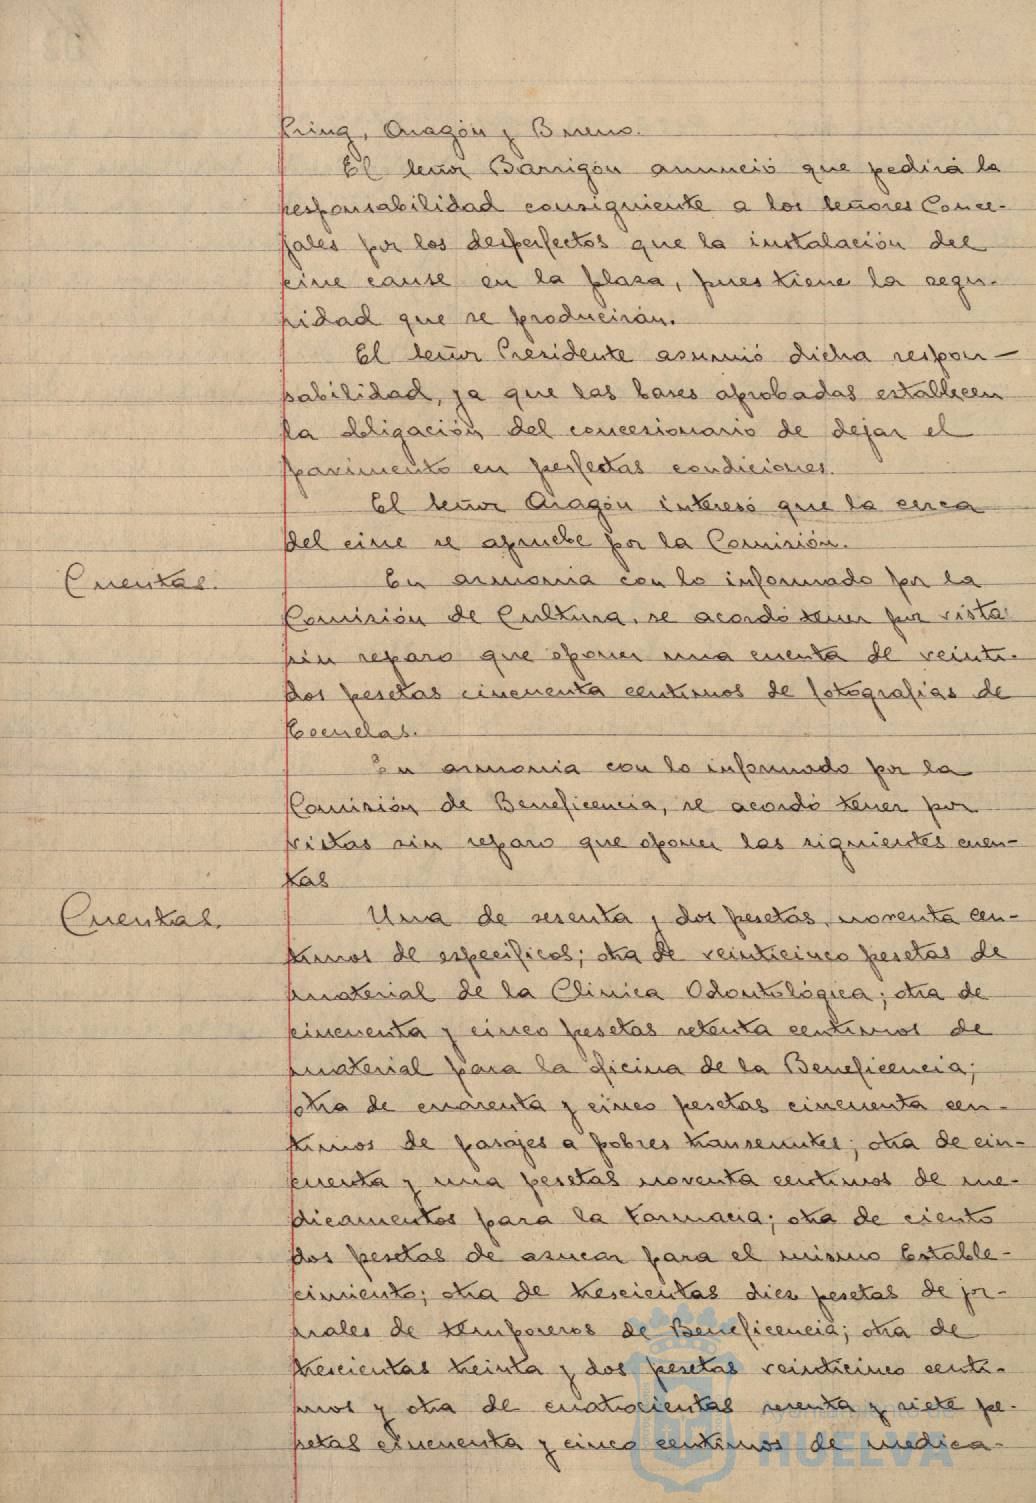 Pring, Aragón y Bueno.
El señor Barrigón anunció que pedirá la
responsabilidad consiguiente a los señores Conce-
jales por los desperfectos que la instalación del
cine cause en la plaza, pues tiene la segu-
ridad que se producirán.
El señor Presidente asumió dicha respon-
sabilidad, ya que las bases aprobadas establecen
la obligación del concesionario de dejar el
pavimento en perfectas condiciones.
El señor Aragón interesó que la cerca
del cine se apruebe por la Comisión.
Cuentas.
En armonia con lo informado por la
Comisión de Cultura, se acordó tener por vista
sin reparo que oponer una cuenta de veinti-
dos pesetas cincuenta centimos de fotografias de
Escuelas.
En armonia con lo informado por la
Comisión de Beneficencia, se acordó tener por
vistas sin reparo que oponer las siguientes cuen-
tas
Cuentas.
Una de sesenta y dos pesetas, noventa cen-
timos de especificos; otra de veinticinco pesetas de
material de la Clinica Odontológica; otra de
cincuenta y cinco pesetas setenta centimos de
material para la oficina de la Beneficencia;
otra de cuarenta y cinco pesetas cincuenta cen-
timos de pasajes a pobres transeuntes; otra de cin-
cuenta y una pesetas noventa centimos de me-
dicamentos para la farmacia; otra de ciento
dos pesetas de azucar para el mismo Estable-
cimiento; otra de trescientas diez pesetas de jor-
nales de temporeros de Beneficencia; otra de
trescientas treinta y dos pesetas veinticinco centi-
mos y otra de cuatrocientas sesenta y siete pe-
setas cincuenta y cinco centimos de medica-
Ayuntamiento de
HUELVA